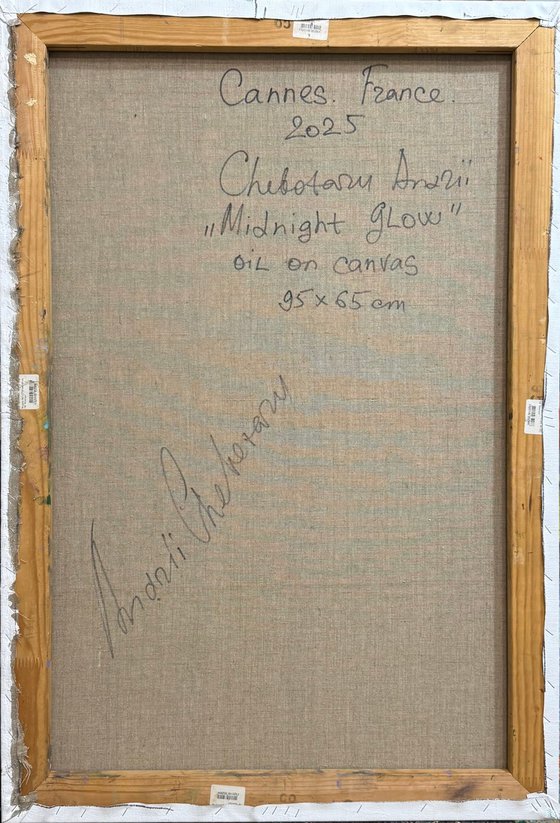 Cannes. France.
2025
Chebotaru Andrii
„Midnight GLOW"
OIL on canvas
95 x 65 cm
Andrii Chebotaru